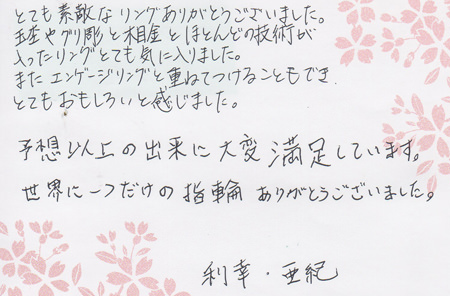 とても素敵なリングありがとうございました。
杢目やグリ彫と相金とほとんどの技術が
入ったリングとても気に入りました。
またエンゲージリングと重ねてつけることもでき
とてもおもしろいと感じました。
予想以上の出来に大変満足しています。
世界に一つだけの指輪ありがとうございました。
利幸・亜紀